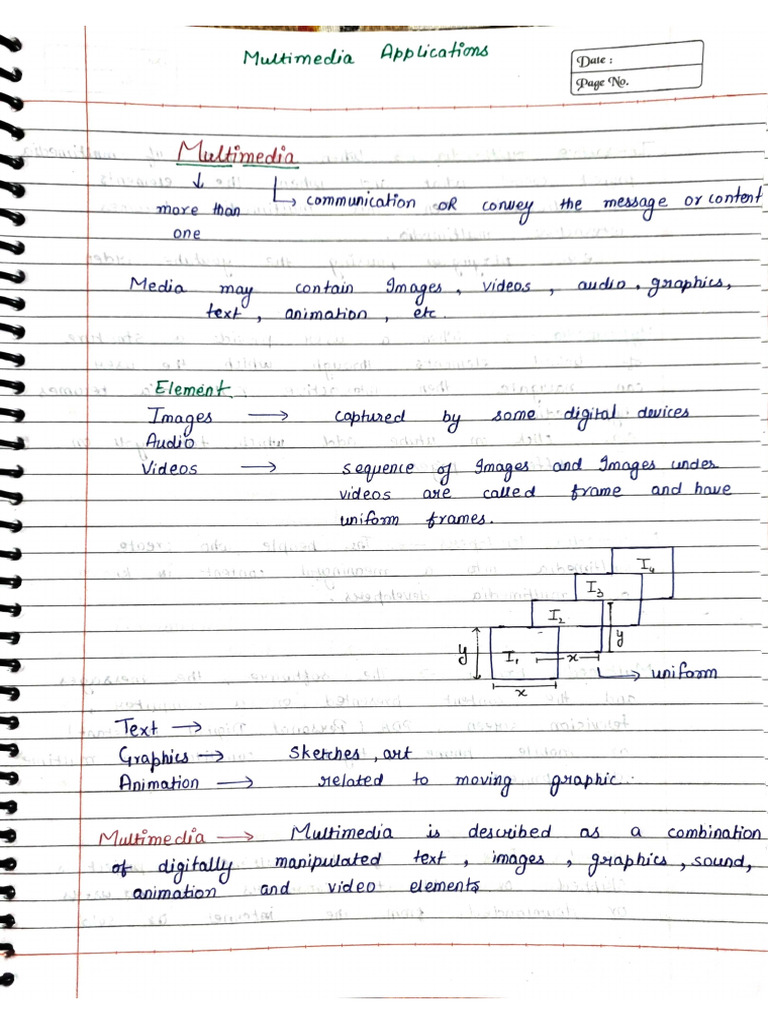 Multimedia Applications
Date :
Page No.
Multimedia
↓ ↳ communication OR convey the message or content
more than
one
Media may contain Images, videos, audio, graphics,
text, animation, etc.
Element
Images → captured by some digital devices
Audio
Videos → sequence of Images and Images under
videos are called frame and have
uniform frames.
I4
I3
I2
y I1 x y
→ uniform
x
Text →
Graphics → Sketches, art
Animation → related to moving graphic.
Multimedia → Multimedia is described as a combination
of digitally manipulated text, images, graphics, sound,
animation and video elements